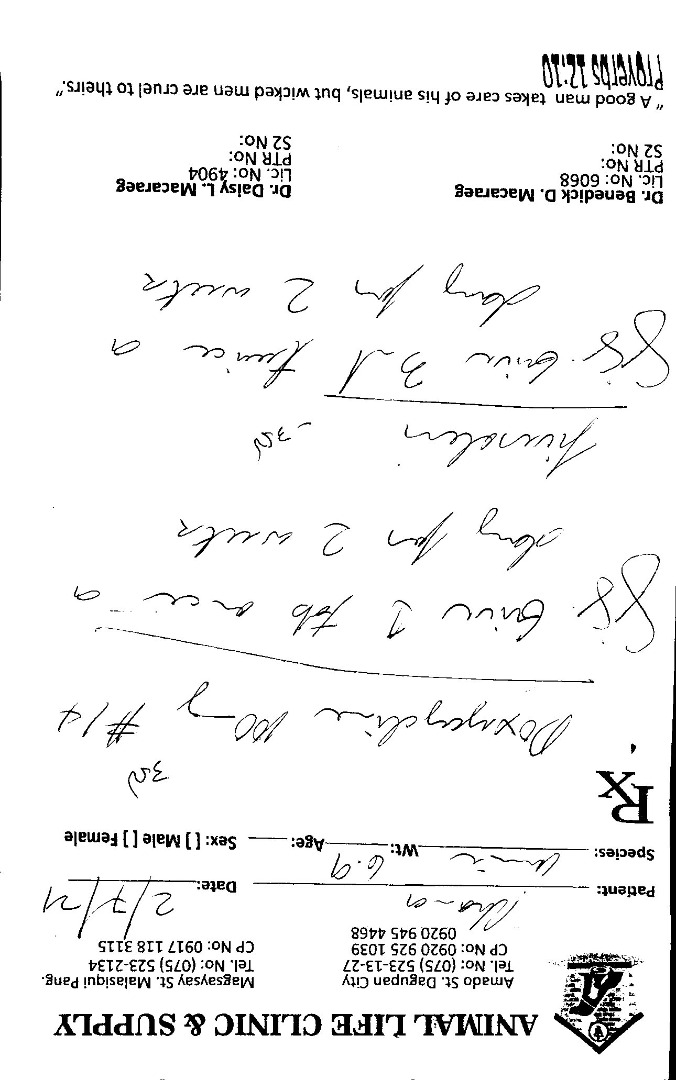 ANIMAL LIFE CLINIC & SUPPLY
Amado St. Dagupan City
Tel. No: (075) 523-13-27
CP No: 0920 925 1039
0920 945 4468
Magsaysay St. Malasiqui Pang.
Tel. No: (075) 523-2134
CP No: 0917 118 3115
Patient: Date: 2/7/21
Species: Canine Wt: 6.9 Age: Sex: [ ] Male [ ] Female
Rx
Doxycycline 100mg #14
Sig. Give 1 tab once a
day for 2 weeks
Sig. Give 3ml twice a
day for 2 weeks
Dr. Benedick D. Macaraeg
Lic. No: 6068
PTR No:
S2 No:
Dr. Daisy L. Macaraeg
Lic. No: 4904
PTR No:
S2 No:
" A good man takes care of his animals, but wicked men are cruel to theirs."
Proverbs 12:10